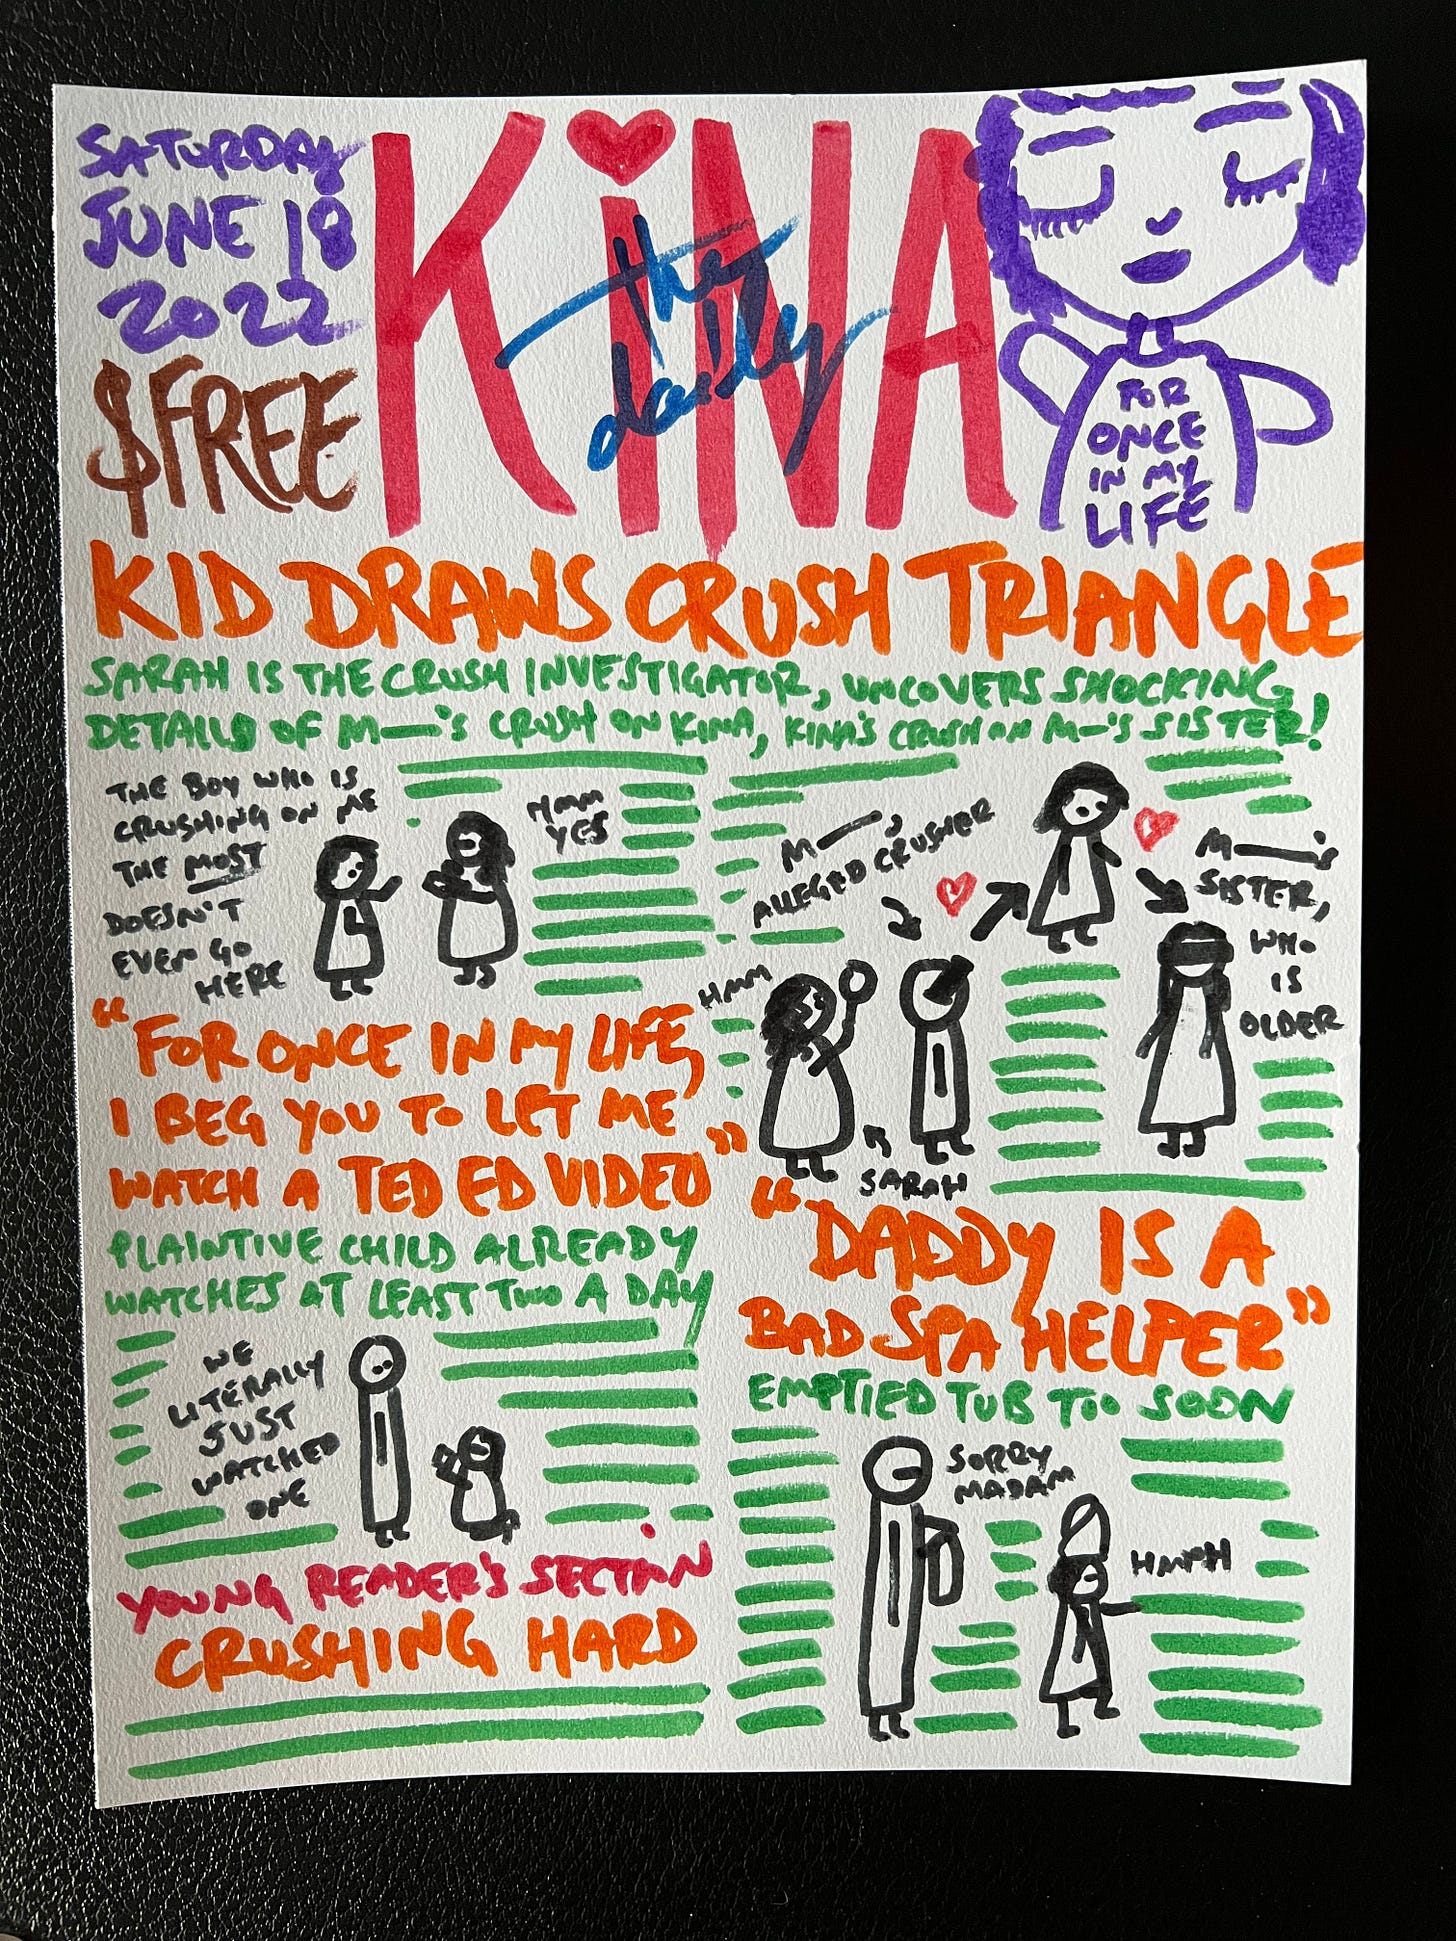 SATURDAY
JUNE 18
2022
$FREE
KiNA
the
daily
FOR
ONCE
IN MY
LIFE
KID DRAWS CRUSH TRIANGLE
SARAH IS THE CRUSH INVESTIGATOR, UNCOVERS SHOCKING
DETAILS OF M—'S CRUSH ON KINA, KINA'S CRUSH ON M—'S SISTER!
THE BOY WHO IS
CRUSHING ON ME
THE MOST
DOESN'T
EVEN GO
HERE
HMM
YES
M—,
ALLEGED CRUSHER
M—'S
SISTER,
WHO
IS
OLDER
HMM
SARAH
"FOR ONCE IN MY LIFE,
I BEG YOU TO LET ME
WATCH A TED ED VIDEO"
PLAINTIVE CHILD ALREADY
WATCHES AT LEAST TWO A DAY
WE
LITERALLY
JUST
WATCHED
ONE
"DADDY IS A
BAD SPA HELPER"
EMPTIED TUB TOO SOON
SORRY
MADAM
HMPH
YOUNG READER'S SECTiON
CRUSHING HARD